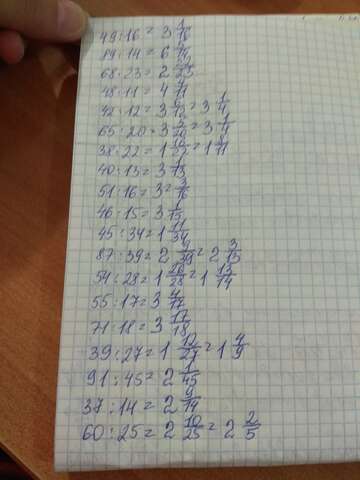 49:16=3 1/16
89:14=6 5/14
68:23=2 22/23
48:11=4 4/11
42:12=3 6/12=3 1/4
65:20=3 5/20=3 1/4
38:22=1 16/22=1 8/11
40:13=3 1/13
51:16=3=3/16
46:15=3 1/15
45:34=1 11/34
87:39=2 9/39=2 3/13
54:28=1 26/28=1 13/14
55:17=3 4/17
71:18=3 17/18
39:27=1 12/27=1 4/9
91:45=2 1/45
37:14=2 9/14
60:25=2 10/25=2 2/5